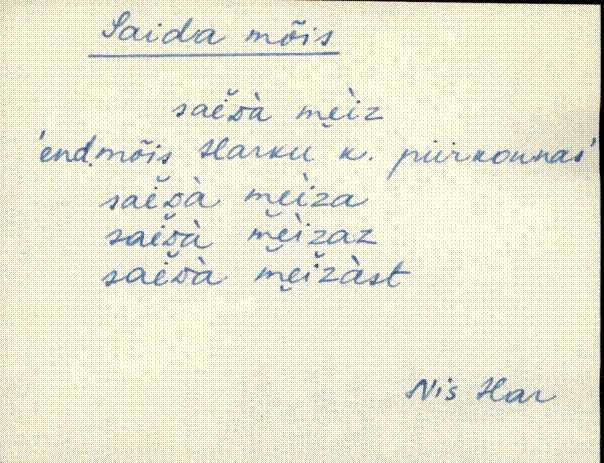 Saida mõis
saěᴅà me̮ìz
'end. mõis Harku k. piirkonnas'
saěᴅà me̮ìza
saěᴅà me̮ìzaz
saěᴅà me̮ìzàst
Nis Har